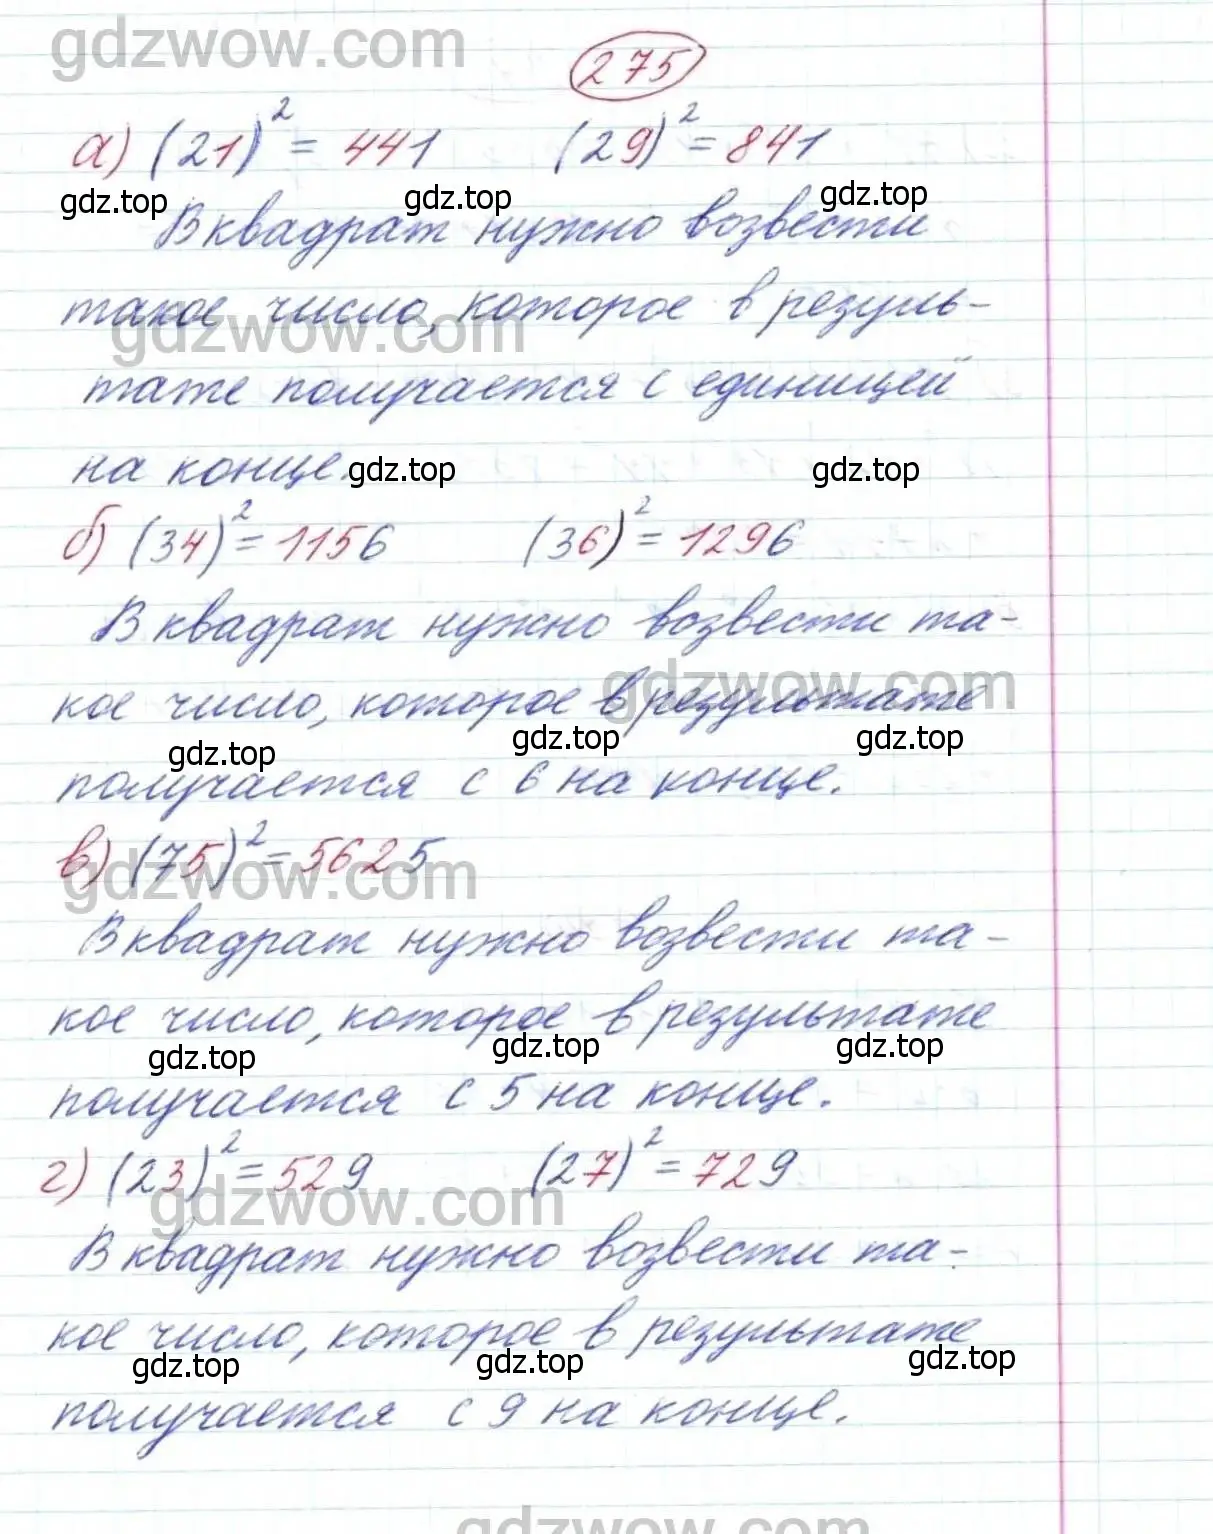 gdzwow.com
275
а) (21)² = 441 (29)² = 841
gdz.top gdz.top gdz.top
В квадрат нужно возвести
такое число, которое в резуль-
gdzwow.com
тате получается с единицей
на конце. gdz.top gdz.top
б) (34)² = 1156 (36)² = 1296
В квадрат нужно возвести та-
gdzwow.com
кое число, которое в результате
gdz.top gdz.top gdz.top
получается с 6 на конце.
в) (75)² = 5625
gdzwow.com
В квадрат нужно возвести та-
кое число, которое в результате
gdz.top gdz.top gdz.top
получается с 5 на конце.
г) (23)² = 529 (27)² = 729
gdzwow.com
В квадрат нужно возвести та-
кое число, которое в результате
gdz.top gdz.top gdz.top
получается с 9 на конце.
gdzwow.com